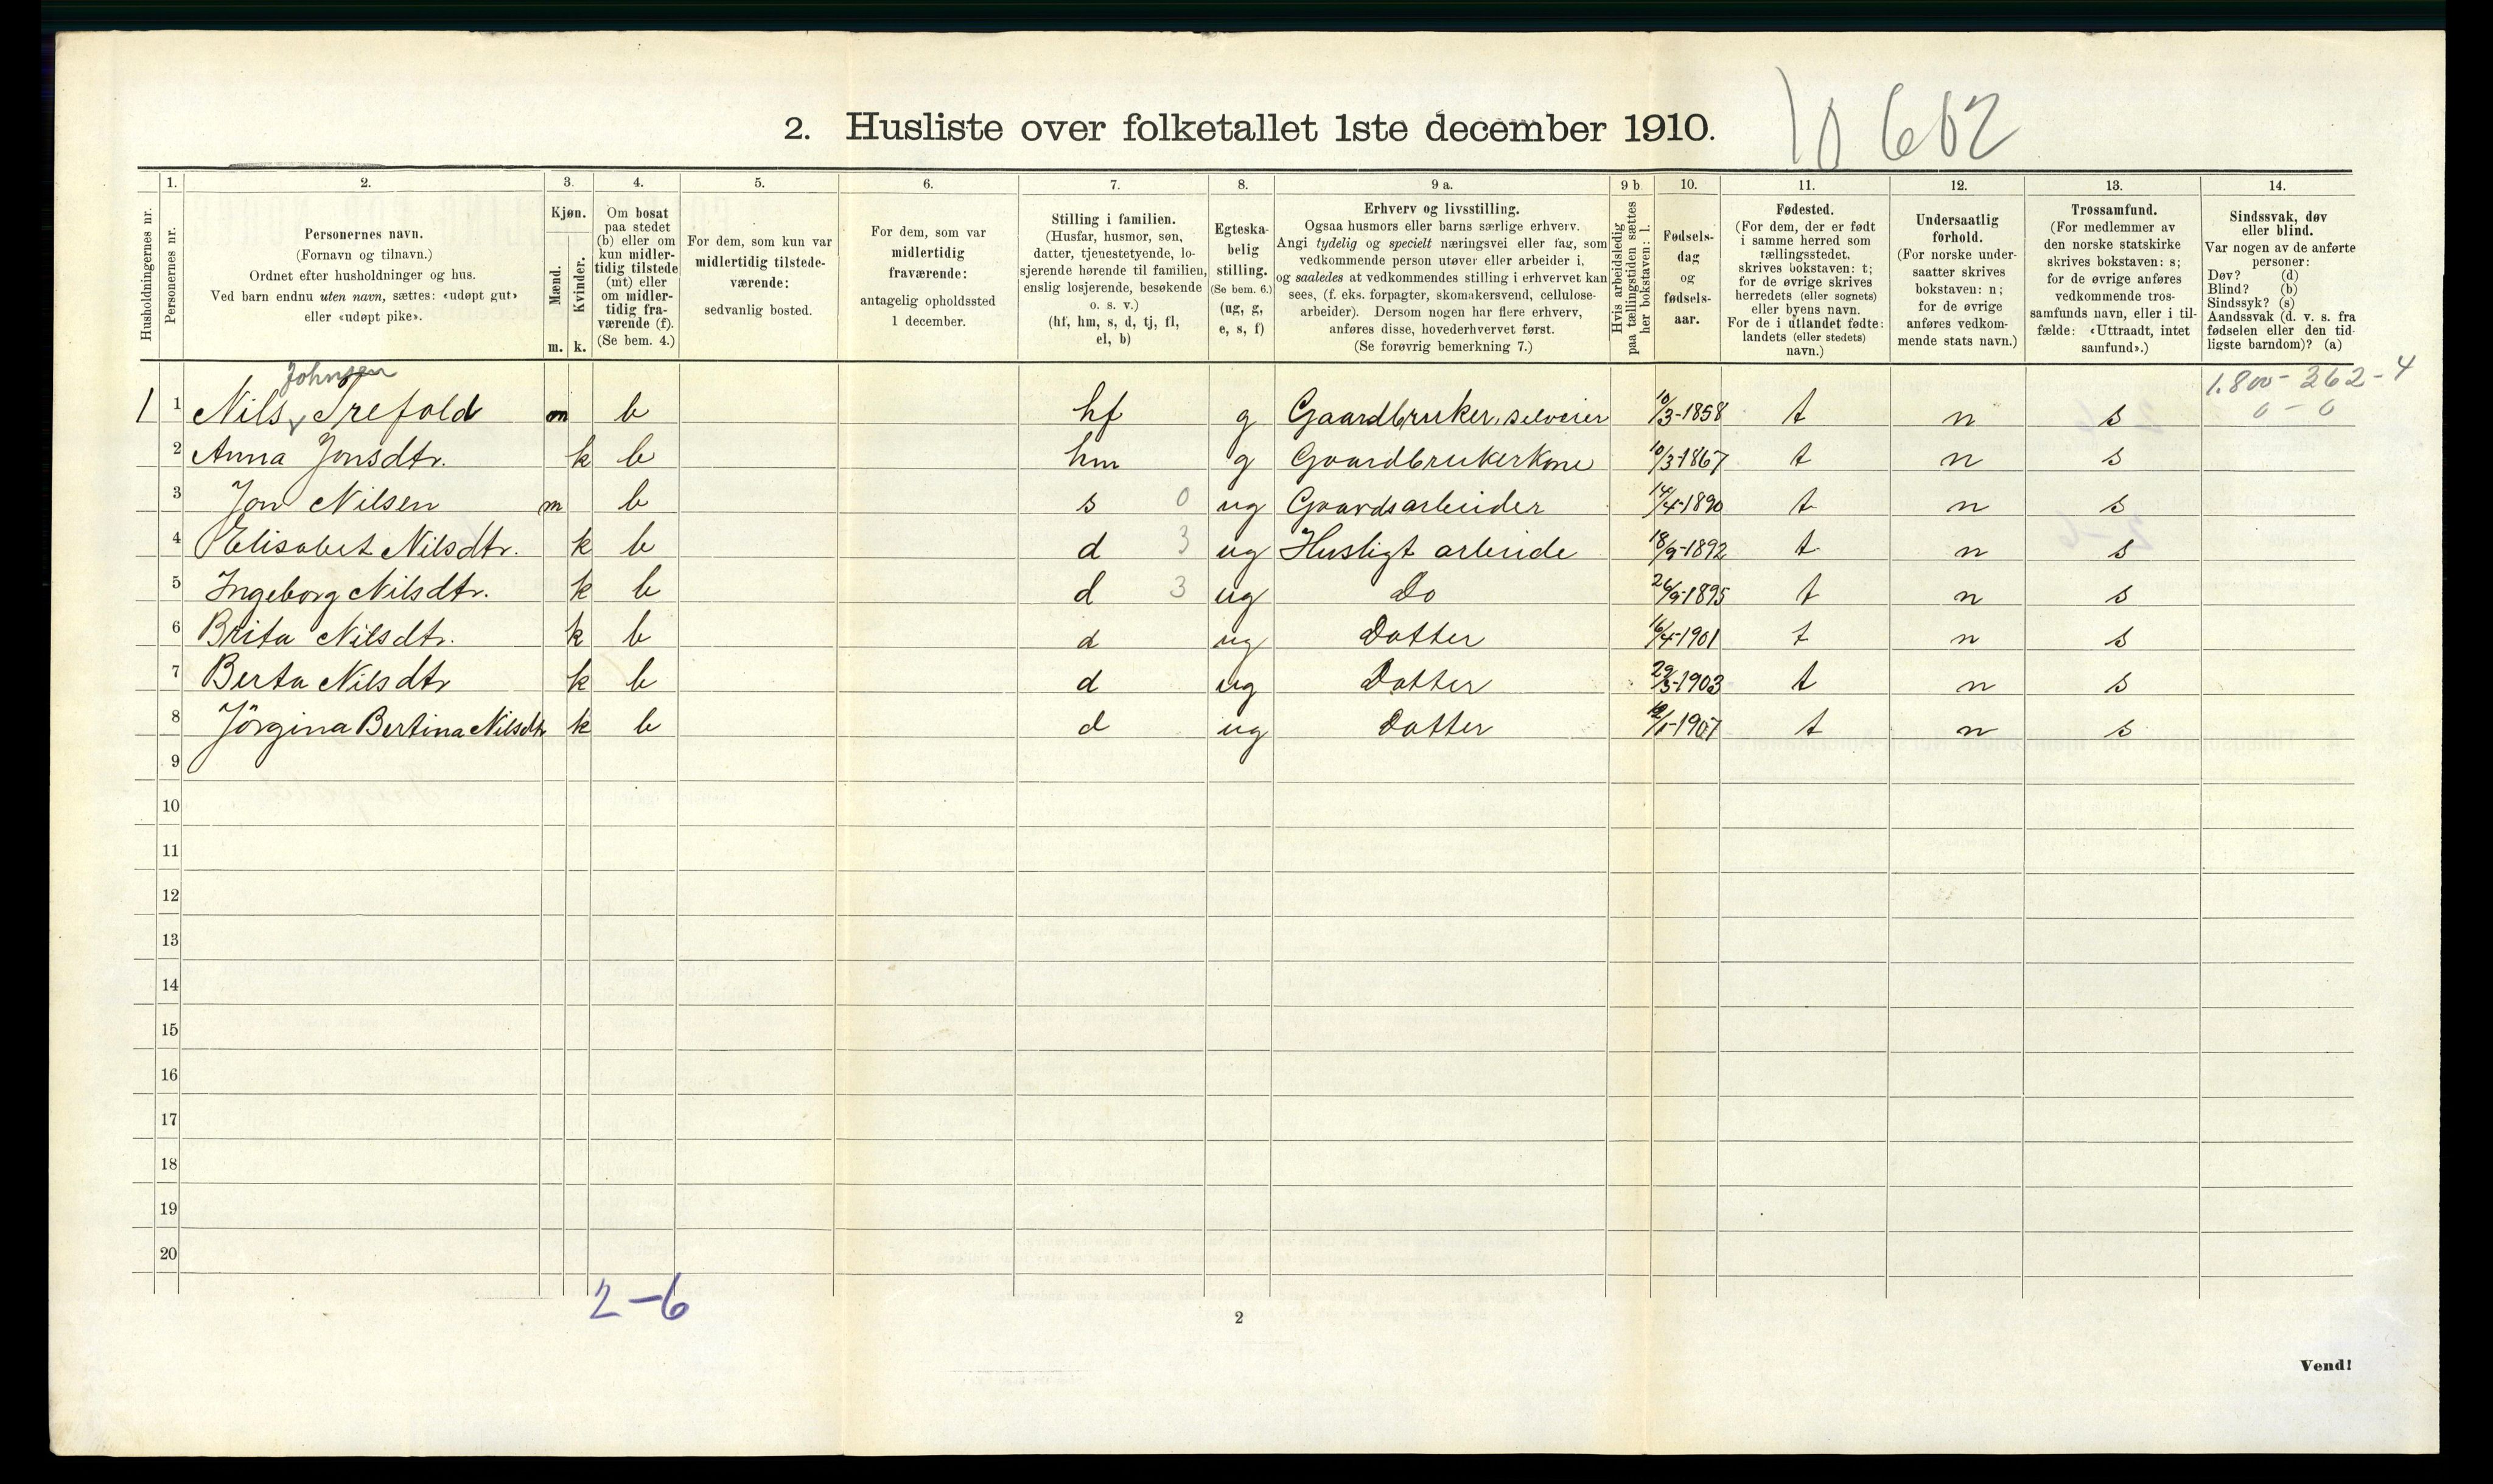 10 602
2. Husliste over folketallet 1ste december 1910.
Husholdningernes nr.
1.
Personernes nr.
2.
Personernes navn.
(Fornavn og tilnavn.)
Ordnet efter husholdninger og hus.
Ved barn endnu uten navn, sættes: «udøpt gut»
eller «udøpt pike».
3.
Kjøn.
Mænd.
Kvinder.
m. k.
4.
Om bosat
paa stedet
(b) eller om
kun midler-
tidig tilstede
(mt) eller
om midler-
tidig fra-
værende (f).
(Se bem. 4.)
5.
For dem, som kun var
midlertidig tilstede-
værende:
sedvanlig bosted.
6.
For dem, som var
midlertidig
fraværende:
antagelig opholdssted
1 december.
7.
Stilling i familien.
(Husfar, husmor, søn,
datter, tjenestetyende, lo-
sjerende hørende til familien,
enslig losjerende, besøkende
o. s. v.)
(hf, hm, s, d, tj, fl,
el, b)
8.
Egteska-
belig
stilling.
(Se bem. 6.)
(ug, g,
e, s, f)
9 a.
Erhverv og livsstilling.
Ogsaa husmors eller barns særlige erhverv.
Angi tydelig og specielt næringsvei eller fag, som
vedkommende person utøver eller arbeider i,
og saaledes at vedkommendes stilling i erhvervet kan
sees, (f. eks. forpagter, skomakersvend, cellulose-
arbeider). Dersom nogen har flere erhverv,
anføres disse, hovederhvervet først.
(Se forøvrig bemerkning 7.)
9 b
Hvis arbeidsledig
paa tællingstiden sættes
her bokstaven: l.
10.
Fødsels-
dag
og
fødsels-
aar.
11.
Fødested.
(For dem, der er født
i samme herred som
tællingsstedet,
skrives bokstaven: t;
for de øvrige skrives
herredets (eller sognets)
eller byens navn.
For de i utlandet fødte:
landets (eller stedets)
navn.)
12.
Undersaatlig
forhold.
(For norske under-
saatter skrives
bokstaven: n;
for de øvrige
anføres vedkom-
mende stats navn.)
13.
Trossamfund.
(For medlemmer av
den norske statskirke
skrives bokstaven: s;
for de øvrige anføres
vedkommende tros-
samfunds navn, eller i til-
fælde: «Uttraadt, intet
samfund».)
14.
Sindssvak, døv
eller blind.
Var nogen av de anførte
personer:
Døv? (d)
Blind? (b)
Sindssyk? (s)
Aandssvak (d. v. s. fra
fødselen eller den tid-
ligste barndom)? (a)
Johnsen 1.800-362-4
1 1 Nils Trefald m b hf g Gaardbruker, selveier 10/3-1858 t n s 0-0
2 Anna Jonsdtr. k b hm g Gaardbrukerkone 10/3-1867 t n s
3 Jon Nilsen m b s 0 ug Gaardsarbeider 14/4-1890 t n s
4 Elisabet Nilsdtr. k b d 3 ug Husligt arbeide 18/9-1892 t n s
5 Ingeborg Nilsdtr. k b d 3 ug Do 26/9-1895 t n s
6 Brita Nilsdtr. k b d ug Datter 16/4-1901 t n s
7 Berta Nilsdtr k b d ug Datter 29/3-1903 t n s
8 Jörgina Bertina Nilsdtr k b d ug Datter t n s
9
10
11
12
13
14
15
16
17
18
19
20
2-6
2
Vend!